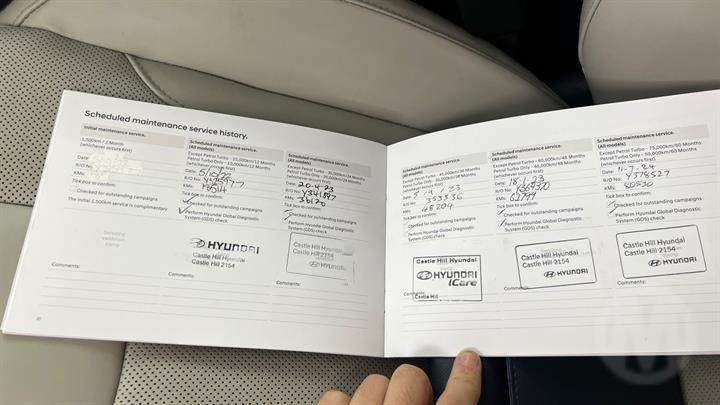 Scheduled maintenance service history.
Initial maintenance service.
1,500km / 1 Month
(whichever occurs first)
Date:
R/O No:
KMs:
Tick box to confirm:
Checked for outstanding campaigns
The initial 1,500km service is complimentary
Servicing
validation
stamp
Comments:
20
Scheduled maintenance service.
(All models)
Except Petrol Turbo - 15,000km/12 Months
Petrol Turbo Only - 10,000km/12 Months
(whichever occurs first)
Date:
R/O No:
KMs:
Tick box to confirm:
Checked for outstanding campaigns
Perform Hyundai Global Diagnostic
System (GDS) check
HYUNDAI
Castle Hill Hyundai
Castle Hill 2154
Comments:
Scheduled maintenance service.
(All models)
Except Petrol Turbo - 30,000km/24 Months
Petrol Turbo Only - 20,000km/24 Months
(whichever occurs first)
Date: 20.4.23
R/O No: Y341897
KMs: 36120
Tick box to confirm:
Checked for outstanding campaigns
Perform Hyundai Global Diagnostic
System (GDS) check
Castle Hill Hyundai
Castle Hill 2154
HYUNDAI
Comments:
Scheduled maintenance service.
(All models)
Except Petrol Turbo - 45,000km/36 Months
Petrol Turbo Only - 30,000km/36 Months
(whichever occurs first)
Date:
R/O No: 353536
KMs: 48204
Tick box to confirm:
Checked for outstanding campaigns
Perform Hyundai Global Diagnostic
System (GDS) check
Castle Hill Hyundai
HYUNDAI
iCare
Castle Hill
Comments:
Scheduled maintenance service.
(All models)
Except Petrol Turbo - 60,000km/48 Months
Petrol Turbo Only - 40,000km/48 Months
(whichever occurs first)
Date:
R/O No:
KMs: 62799
Tick box to confirm:
Checked for outstanding campaigns
Perform Hyundai Global Diagnostic
System (GDS) check
Castle Hill Hyundai
Castle Hill 2154
HYUNDAI
Comments:
Scheduled maintenance service.
(All models)
Except Petrol Turbo - 75,000km/60 Months
Petrol Turbo Only - 50,000km/60 Months
(whichever occurs first)
Date: 11-7-24
R/O No: Y378527
KMs: 80530
Tick box to confirm:
Checked for outstanding campaigns
Perform Hyundai Global Diagnostic
System (GDS) check
Castle Hill Hyundai
Castle Hill 2154
HYUNDAI
Comments: